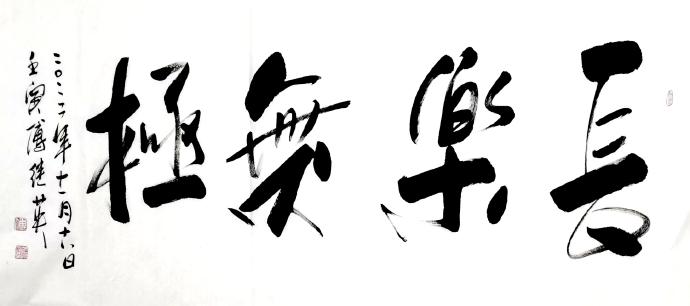 長樂無極
二〇二二年十一月十六日
壬寅傅继英